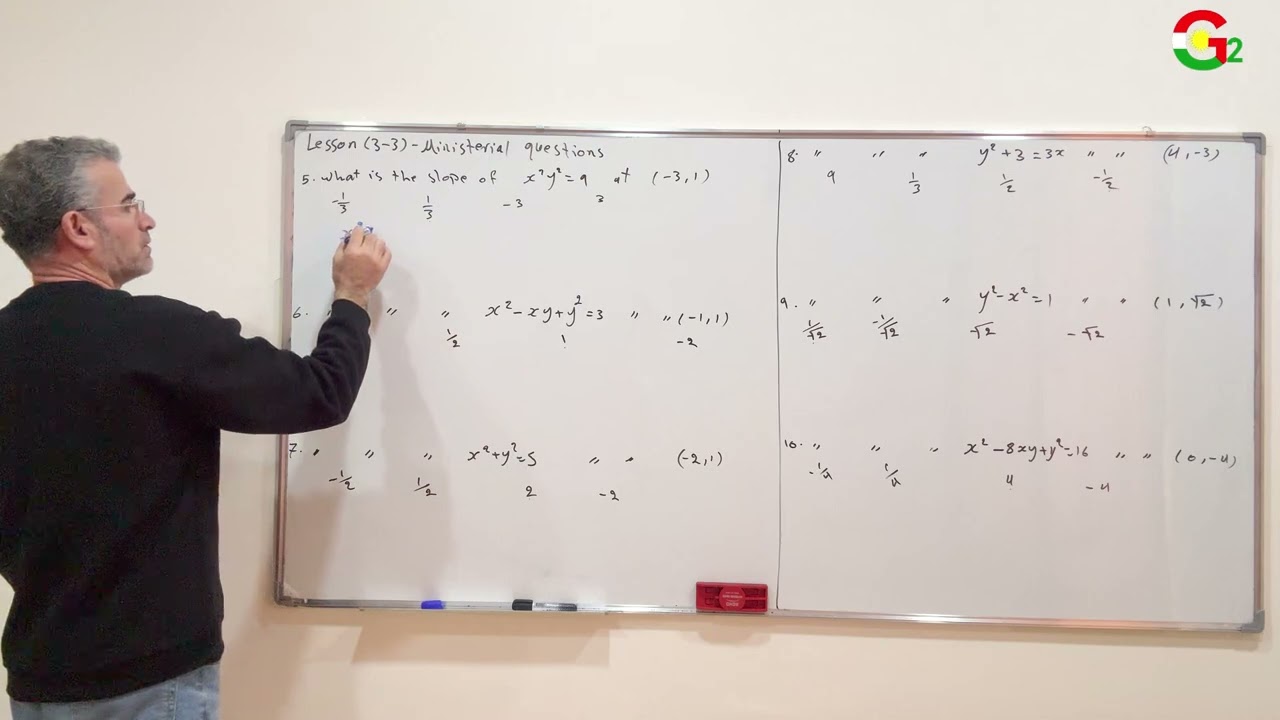 G2
Lesson (3-3) - Ministerial questions
5. what is the slope of x²y²=9 at (-3,1)
-1/3 1/3 -3 3
6. " " " x²-xy+y²=3 " " (-1,1)
1/2 1 -2
7. " " " x²+y²=5 " " (-2,1)
-1/2 1/2 2 -2
8. " " " y²+3=3x " " (4,-3)
9 1/3 1/2 -1/2
9. " " " y²-x²=1 " " (1,√2)
1/√2 -1/√2 √2 -√2
10. " " " x²-8xy+y²=16 " " (0,-4)
-1/4 1/4 4 -4